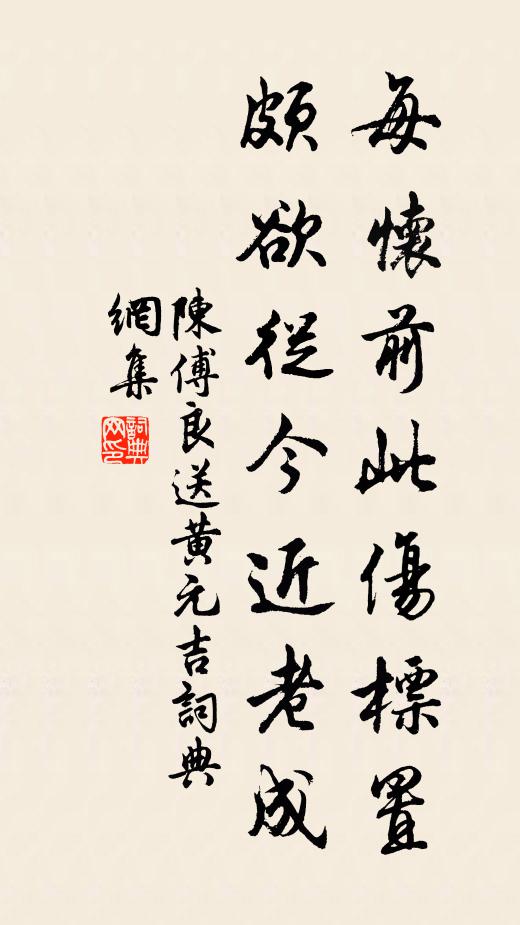 每懷前此傷標置
頗欲從今近老成
陳傅良送黄元吉詞典
網集
詞典
网印